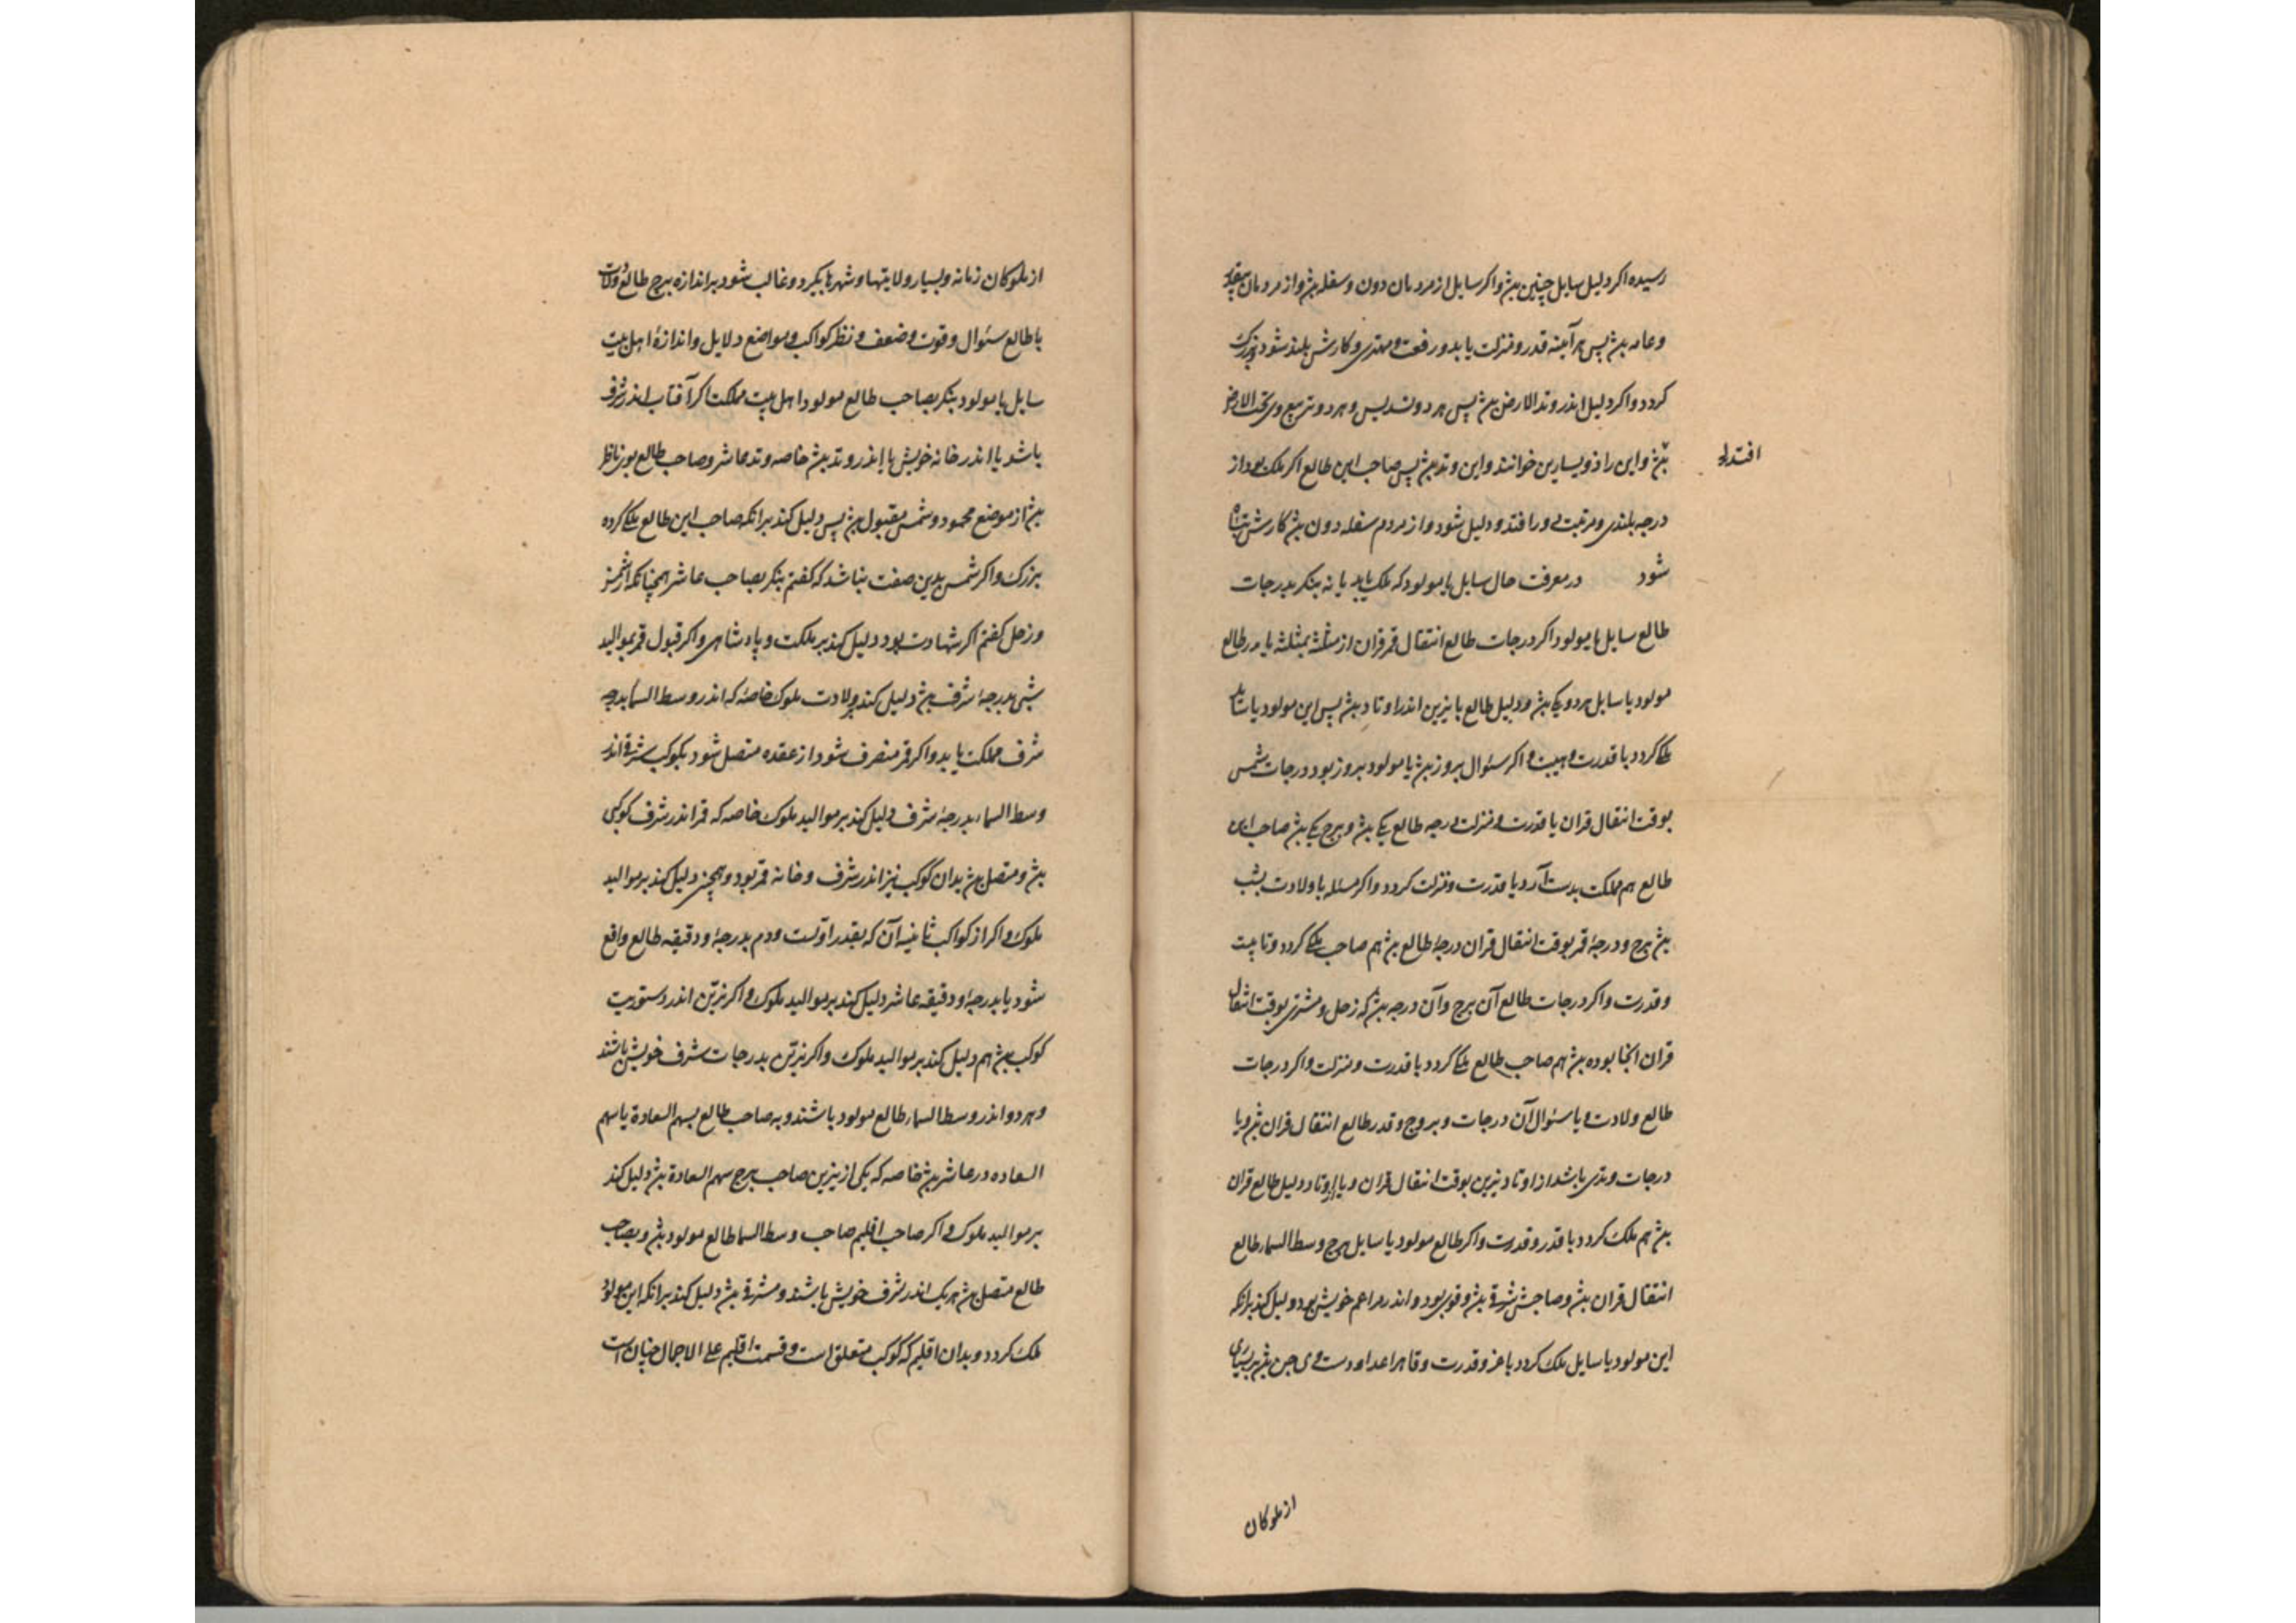 رسیده اکر دلیل سایل چنین بیش واکر سایل از مردمان دون وسفله بیش واز مردمان
وعامه بیش پس هرآینه قدر ومنزلت یابد ورفعت ومهتری وکارش بلند شود وبزرک
کردد واکر دلیل اندر وتد الارض بیش پس هر دو تسدیس وهر دو تربیع وی تحت الارض
افتد
بیش واین را ذویسارین خوانند واین وتد بیش پس صاحب این طالع اکر ملک بود از
درجه بلندی ومرتبت دور افتد ودلیل شود واز مردم سفله دون بیش کارش تباه
شود در معرفت حال سایل یا مولود که ملک یابد یا نه بنکر بدرجات
طالع سایل یا مولود اکر درجات طالع انتقال قمر قران از مثلثه بمثلثه یا در طالع
مولود یا سایل هر دو یکی بیش ودلیل طالع با نیرین اندر اوتاد بیش پس این مولود یا سایل
ملک کردد با قدرت وهیبت واکر سئوال بروز بیش یا مولود بروز بود ودرجات شمس
بوقت انتقال قران با قدرت ومنزلت درجه طالع یکی بیش وبرج یکی بیش صاحب این
طالع هم مملکت بدست آرد با قدرت ومنزلت کردد واکر مسئله یا ولادت بشب
بیش برج ودرجهٔ قمر بوقت انتقال قران درجهٔ طالع بیش هم صاحب ملک کردد
وقدرت واکر درجات طالع آن برج وآن درجه بیش که زحل ومشتری بوقت انتقال
قران آنجا بوده بیش هم صاحب طالع ملک کردد با قدرت ومنزلت واکر درجات
طالع ولادت ویا سئوال آن درجات وبروج وقدر طالع انتقال قران بیش ویا
درجات وتدی باشد از اوتاد نیرین بوقت انتقال قران ویا اوتاد دلیل طالع قران
بیش هم ملک کردد با قدر وقدرت واکر طالع مولود یا سایل برج وسط السماء طالع
انتقال قران بیش وصاحبش شرقی بیش وقوی بود واندر مزاعم خویش بود دلیل کند برانکه
این مولود یا سایل ملک کردد با عز وقدرت وقاهر اعدا
از ملوکان
از ملوکان زمانه وبسیار ولایتها وشهرها بکیرد وغالب شود بر اندازه برج طالع ولادت
یا طالع سئوال وقوت وضعف ونظر کواکب ومواضع دلایل واندازهٔ اهل بیت
سایل یا مولود بنکر بصاحب طالع مولود اهل بیت مملکت اکر آفتاب اندر شرف
باشد یا اندر خانه خویش یا اندر وتد بیش خاصه وتد عاشر وصاحب طالع بوی ناظر
بیش از موضع محمود وشمس مقبول بیش پس دلیل کند برانکه صاحب این طالع ملک کردد
بزرک واکر شمس بدین صفت نباشد که کفتم بنکر بصاحب عاشر همچنانکه از شمس
وزحل کفتم اکر شهادت بود دلیل کند بر ملکت وپادشاهی واکر قبول قمر بموالید
شبی بدرجهٔ شرف بیش دلیل کند بولادت ملوک خاصه که اندر وسط السما بدرجه
شرف مملکت یابد واکر قمر منصرف شود از عقده متصل شود بکوکب شرقی اندر
وسط السماء بدرجهٔ شرف دلیل کند بر موالید ملوک خاصه که قمر اندر شرف کوکبی
بیش ومتصل بیش بدان کوکب نیز اندر شرف وخانه قمر بود وهمچنین دلیل کند بر موالید
ملوک واکر از کواکب ثابته آن که بقدر اولست ودوم بدرجهٔ ودقیقه طالع واقع
شود یا بدرجهٔ ودقیقه عاشر دلیل کند بر موالید ملوک واکر نیرین اندر دستوریت
کوکب بیش هم دلیل کند بر موالید ملوک واکر نیرین بدرجات شرف خویش باشند
وهر دو اندر وسط السماء طالع مولود باشند وبه صاحب طالع بسهم السعادة یا سهم
السعاده در عاشر بیش خاصه که یکی از نیرین صاحب برج سهم السعادة بیش دلیل کند
بر موالید ملوک واکر صاحب اقلیم صاحب وسط السما طالع مولود بیش وبصاحب
طالع متصل بیش هر یک اندر شرف خویش باشند ومشرقی بیش دلیل کند برانکه این مولود
ملک کردد وبدان اقلیم که کوکب متعلق است وقسمت اقلیم علی الاجمال چنان است